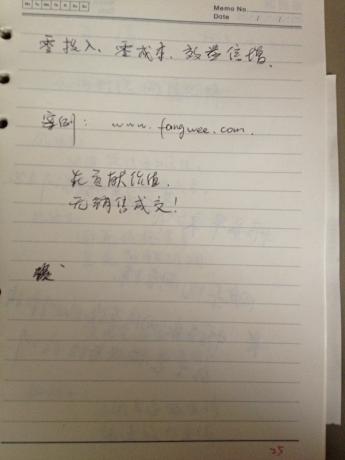 Memo No.
Mo Tu We Th Fr Sa Su
Date / /
零投入、零成本、效益倍增.
案例: www.fangwee.com.
先贡献价值,
无销售成交!
25